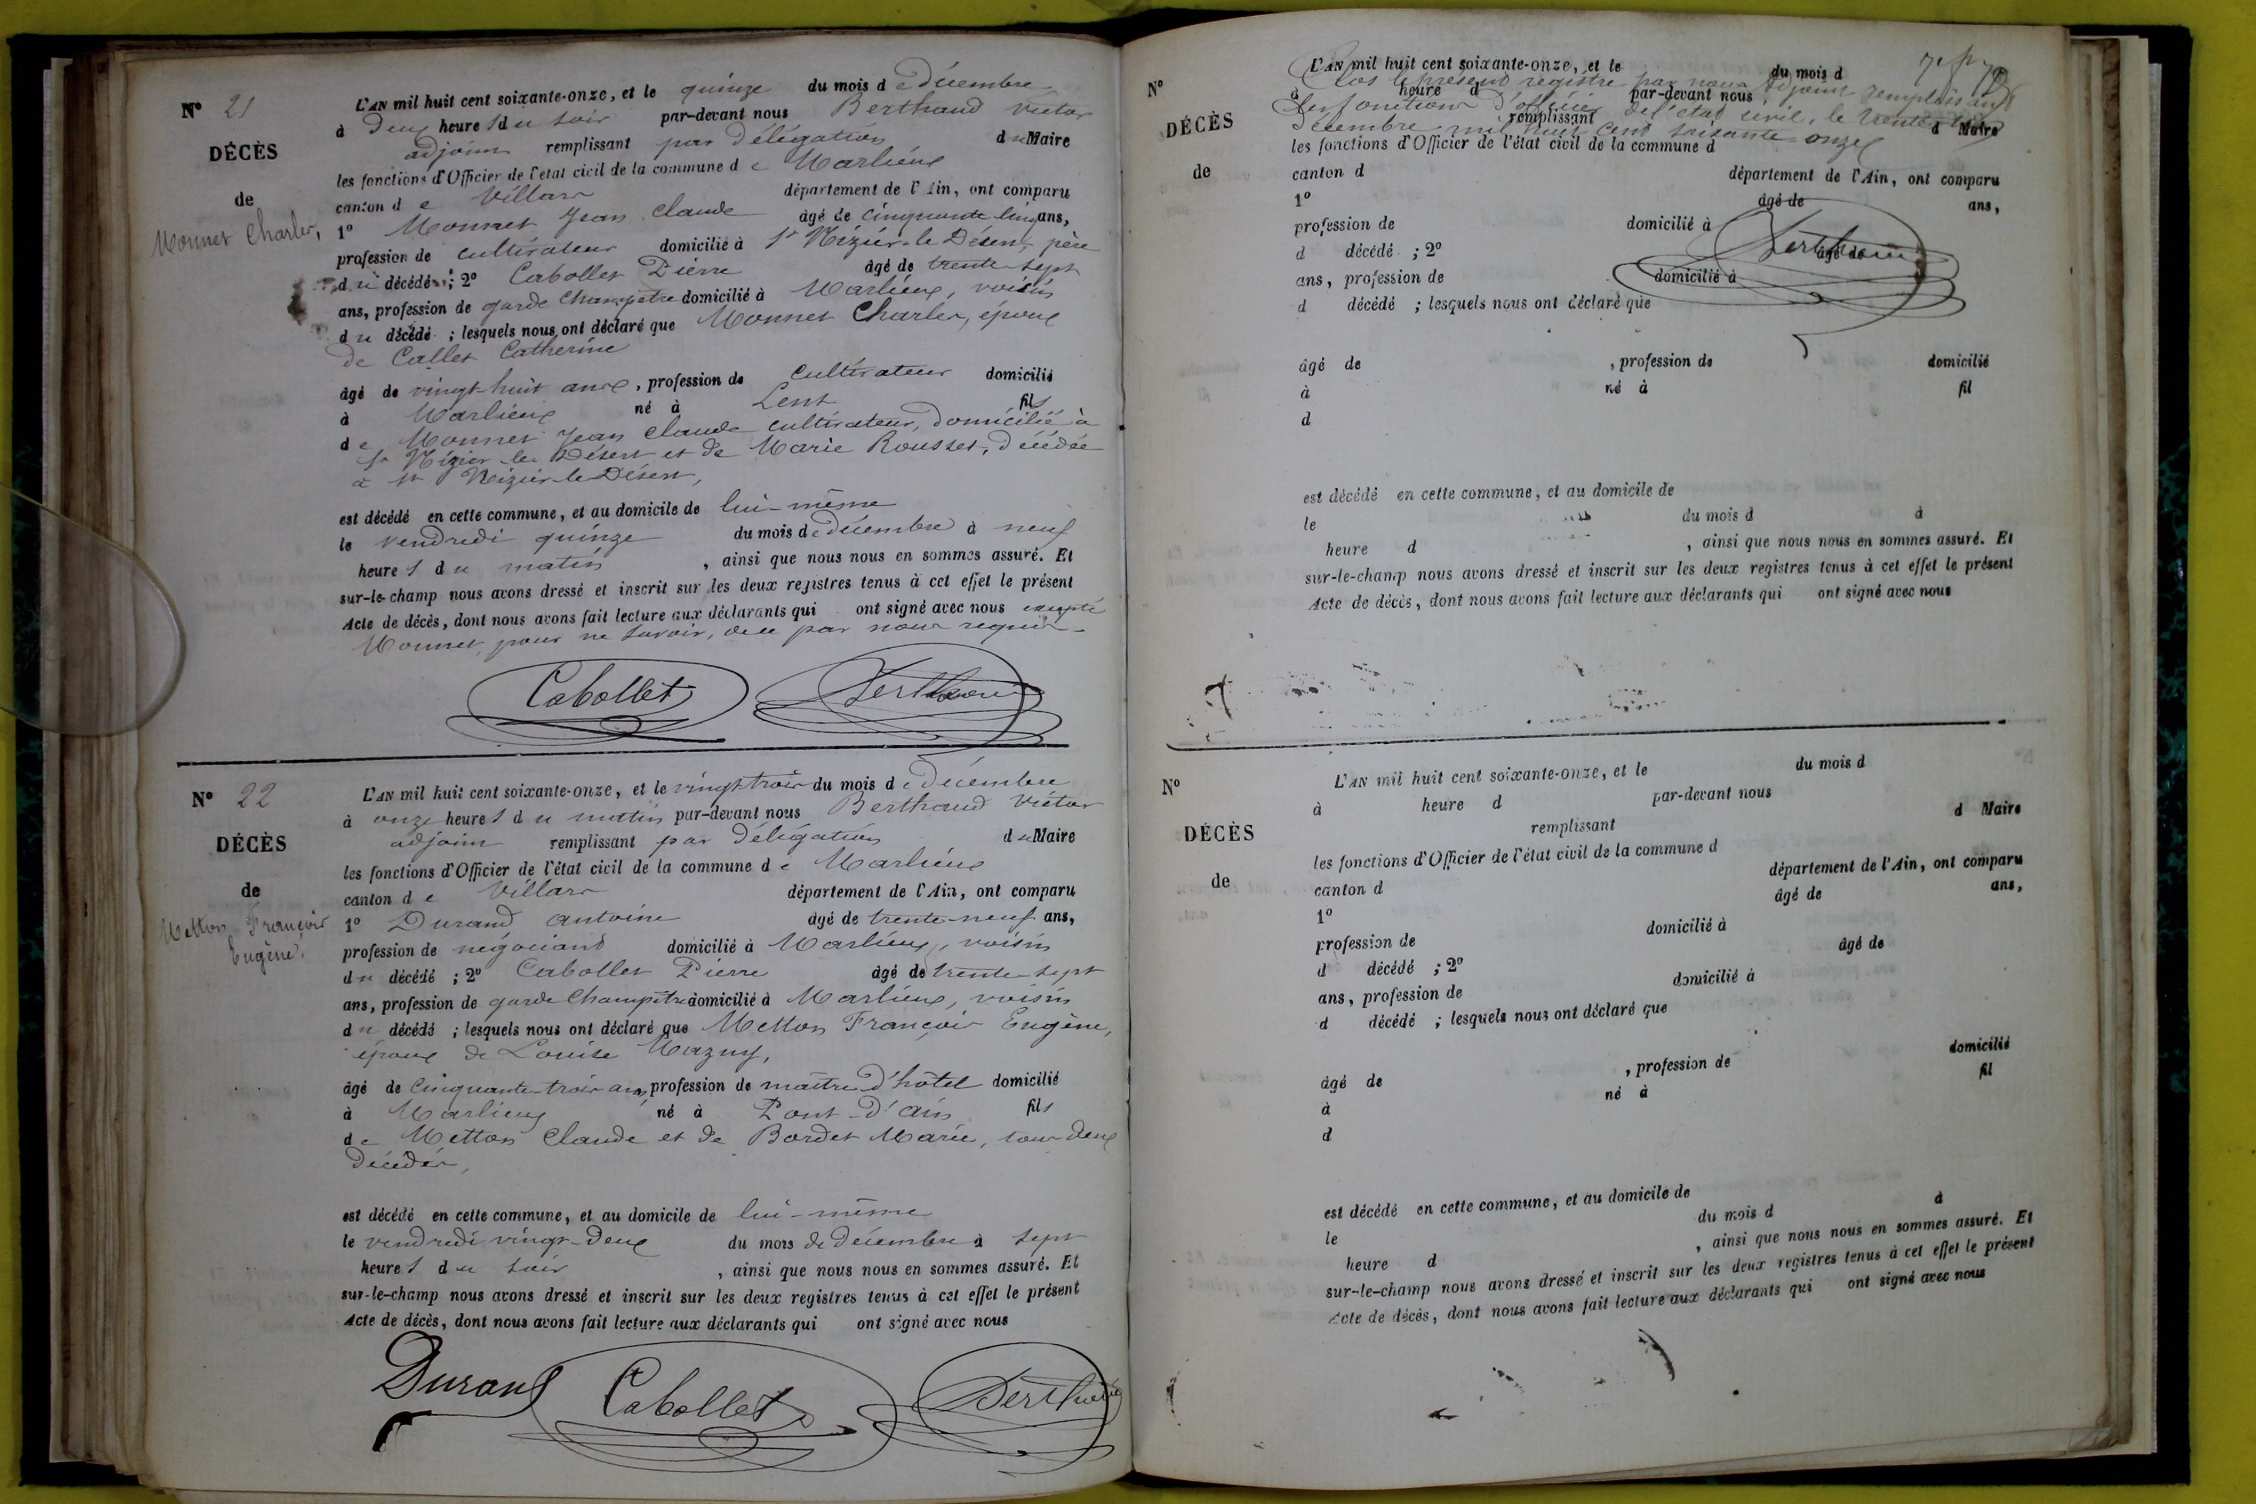 N° 21
DÉCÈS
de
Monnet Charles,
L'AN mil huit cent soixante-onze, et le quinze du mois de décembre
à deux heures du soir par-devant nous Berthaud Victor
adjoint remplissant par délégation du Maire
les fonctions d'Officier de l'état civil de la commune de Marlieux
canton de Villars département de l'Ain, ont comparu
1° Monnet Jean Claude âgé de cinquante cinq ans,
profession de cultivateur domicilié à St Nizier-le-Désert, père
du décédé ; 2° Cabollet Pierre âgé de trente-sept
ans, profession de garde champêtre domicilié à Marlieux, voisin
du décédé ; lesquels nous ont déclaré que Monnet Charles, époux
de Callet Catherine
âgé de vingt-huit ans, profession de cultivateur domicilié
à Marlieux né à Lent fils
de Monnet Jean Claude cultivateur, domicilié à
St Nizier-le-Désert et de Marie Rousset, décédée
à St Nizier-le-Désert,
est décédé en cette commune, et au domicile de lui-même
le vendredi quinze du mois de décembre à neuf
heures du matin, ainsi que nous nous en sommes assuré. Et
sur-le-champ nous avons dressé et inscrit sur les deux registres tenus à cet effet le présent
Acte de décès, dont nous avons fait lecture aux déclarants qui ont signé avec nous excepté
Monnet, pour ne savoir, de ce par nous requis
Cabollet Berthaud
N° 22
DÉCÈS
de
Metton François
Eugène,
L'AN mil huit cent soixante-onze, et le vingt trois du mois de décembre
à onze heures du matin par-devant nous Berthaud Victor
adjoint remplissant par délégation du Maire
les fonctions d'Officier de l'état civil de la commune de Marlieux
canton de Villars département de l'Ain, ont comparu
1° Durand Antoine âgé de trente-neuf ans,
profession de négociant domicilié à Marlieux, voisin
du décédé ; 2° Cabollet Pierre âgé de trente-sept
ans, profession de garde champêtre domicilié à Marlieux, voisin
du décédé ; lesquels nous ont déclaré que Metton François Eugène,
époux de Louise Mazuy,
âgé de cinquante-trois ans, profession de maître d'hôtel domicilié
à Marlieux, né à Pont-d'Ain fils
de Metton Claude et de Bordet Marie, tous deux
décédés,
est décédé en cette commune, et au domicile de lui-même
le vendredi vingt-deux du mois de décembre à sept
heures du soir, ainsi que nous nous en sommes assuré. Et
sur-le-champ nous avons dressé et inscrit sur les deux registres tenus à cet effet le présent
Acte de décès, dont nous avons fait lecture aux déclarants qui ont signé avec nous
Durand Cabollet Berthaud
N°
DÉCÈS
de
L'AN mil huit cent soixante-onze, et le du mois d
Clos le présent registre par nous adjoint remplissant
à heure d par-devant nous
les fonctions d'officier de l'état civil, le trente et un
remplissant d Maire
décembre mil huit cent soixante onze
les fonctions d'Officier de l'état civil de la commune d
canton d département de l'Ain, ont comparu
1° âgé de ans,
profession de domicilié à
Berthaud
d décédé ; 2° âgé de
ans, profession de domicilié à
d décédé ; lesquels nous ont déclaré que
âgé de , profession de domicilié
à né à fil
d
est décédé en cette commune, et au domicile de
le du mois d à
heure d , ainsi que nous nous en sommes assuré. Et
sur-le-champ nous avons dressé et inscrit sur les deux registres tenus à cet effet le présent
Acte de décès, dont nous avons fait lecture aux déclarants qui ont signé avec nous
N°
DÉCÈS
de
L'AN mil huit cent soixante-onze, et le du mois d
à heure d par-devant nous
remplissant d Maire
les fonctions d'Officier de l'état civil de la commune d
canton d département de l'Ain, ont comparu
1° âgé de ans,
profession de domicilié à
d décédé ; 2° âgé de
ans, profession de domicilié à
d décédé ; lesquels nous ont déclaré que
âgé de , profession de domicilié
à né à fil
d
est décédé en cette commune, et au domicile de
le du mois d à
heure d , ainsi que nous nous en sommes assuré. Et
sur-le-champ nous avons dressé et inscrit sur les deux registres tenus à cet effet le présent
Acte de décès, dont nous avons fait lecture aux déclarants qui ont signé avec nous